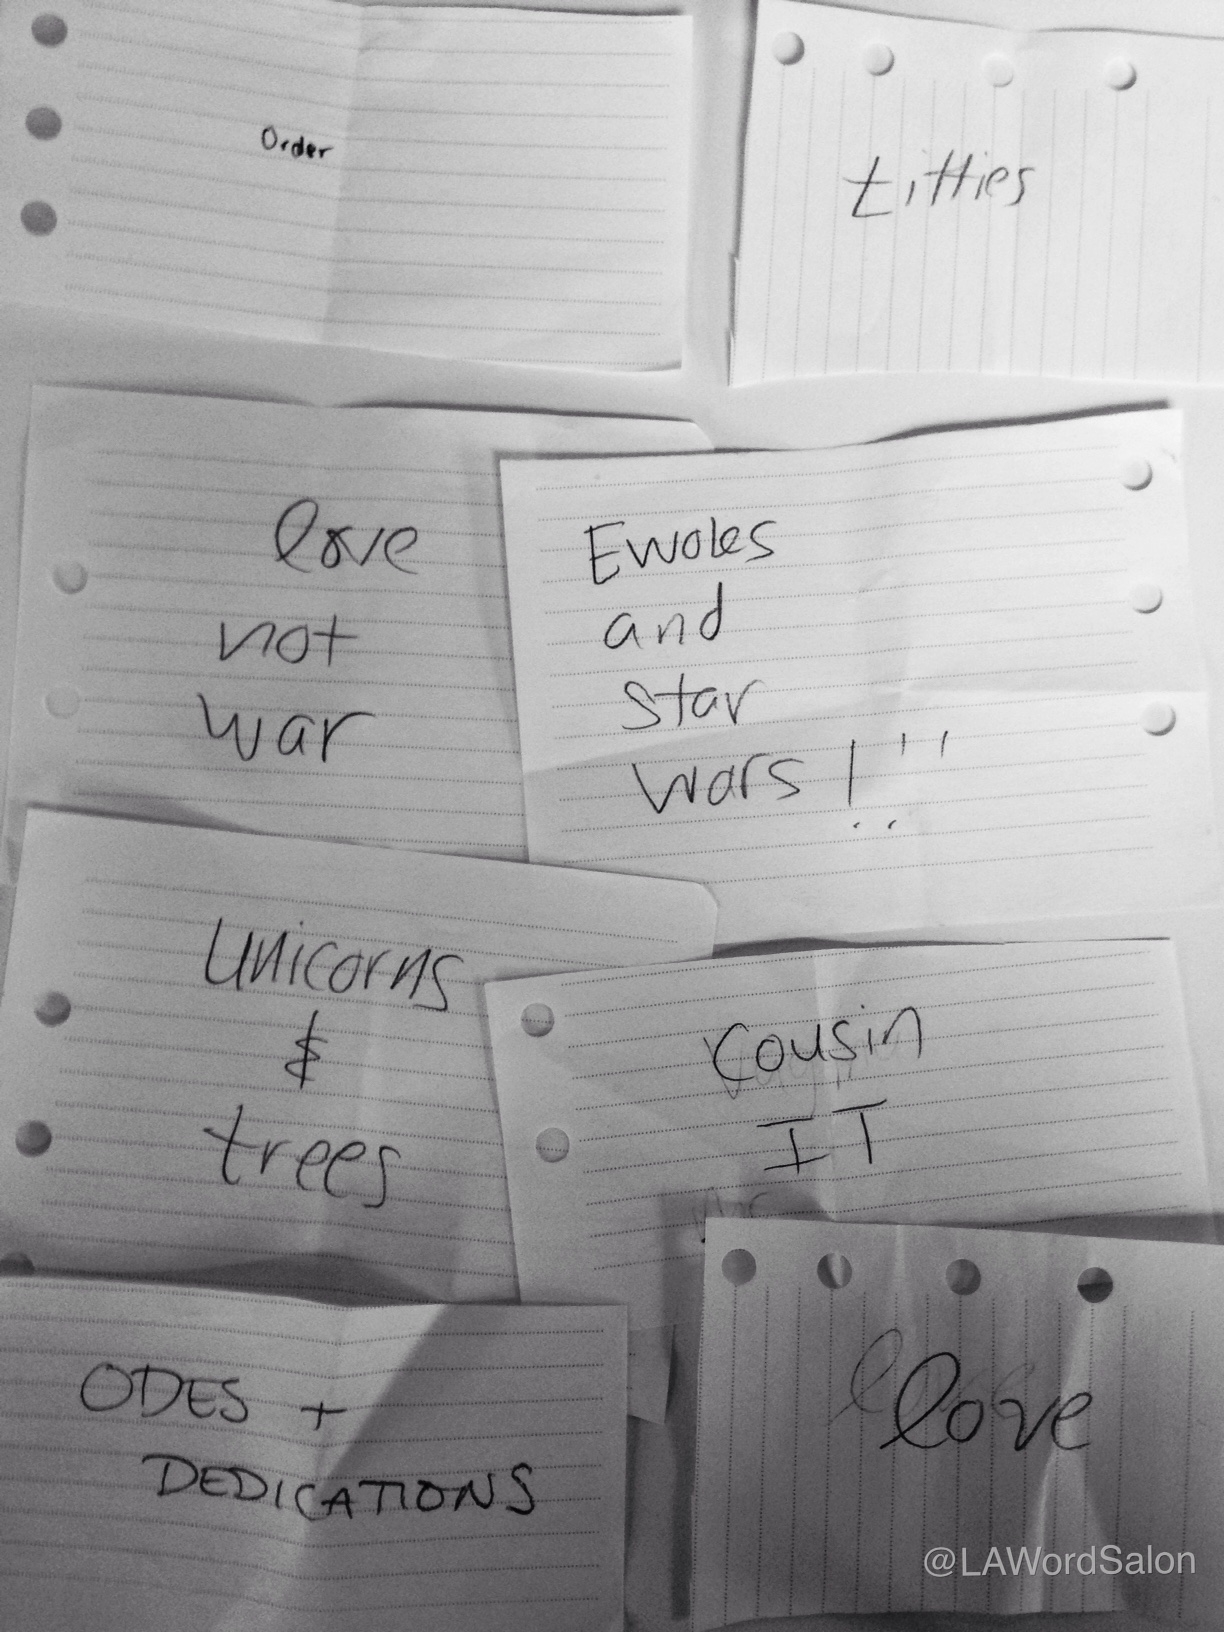 Order
titties
love
not
war
Ewoks
and
star
wars!!!
Unicorns
&
trees
Cousin
IT
ODES +
DEDICATIONS
love
@LAWordSalon